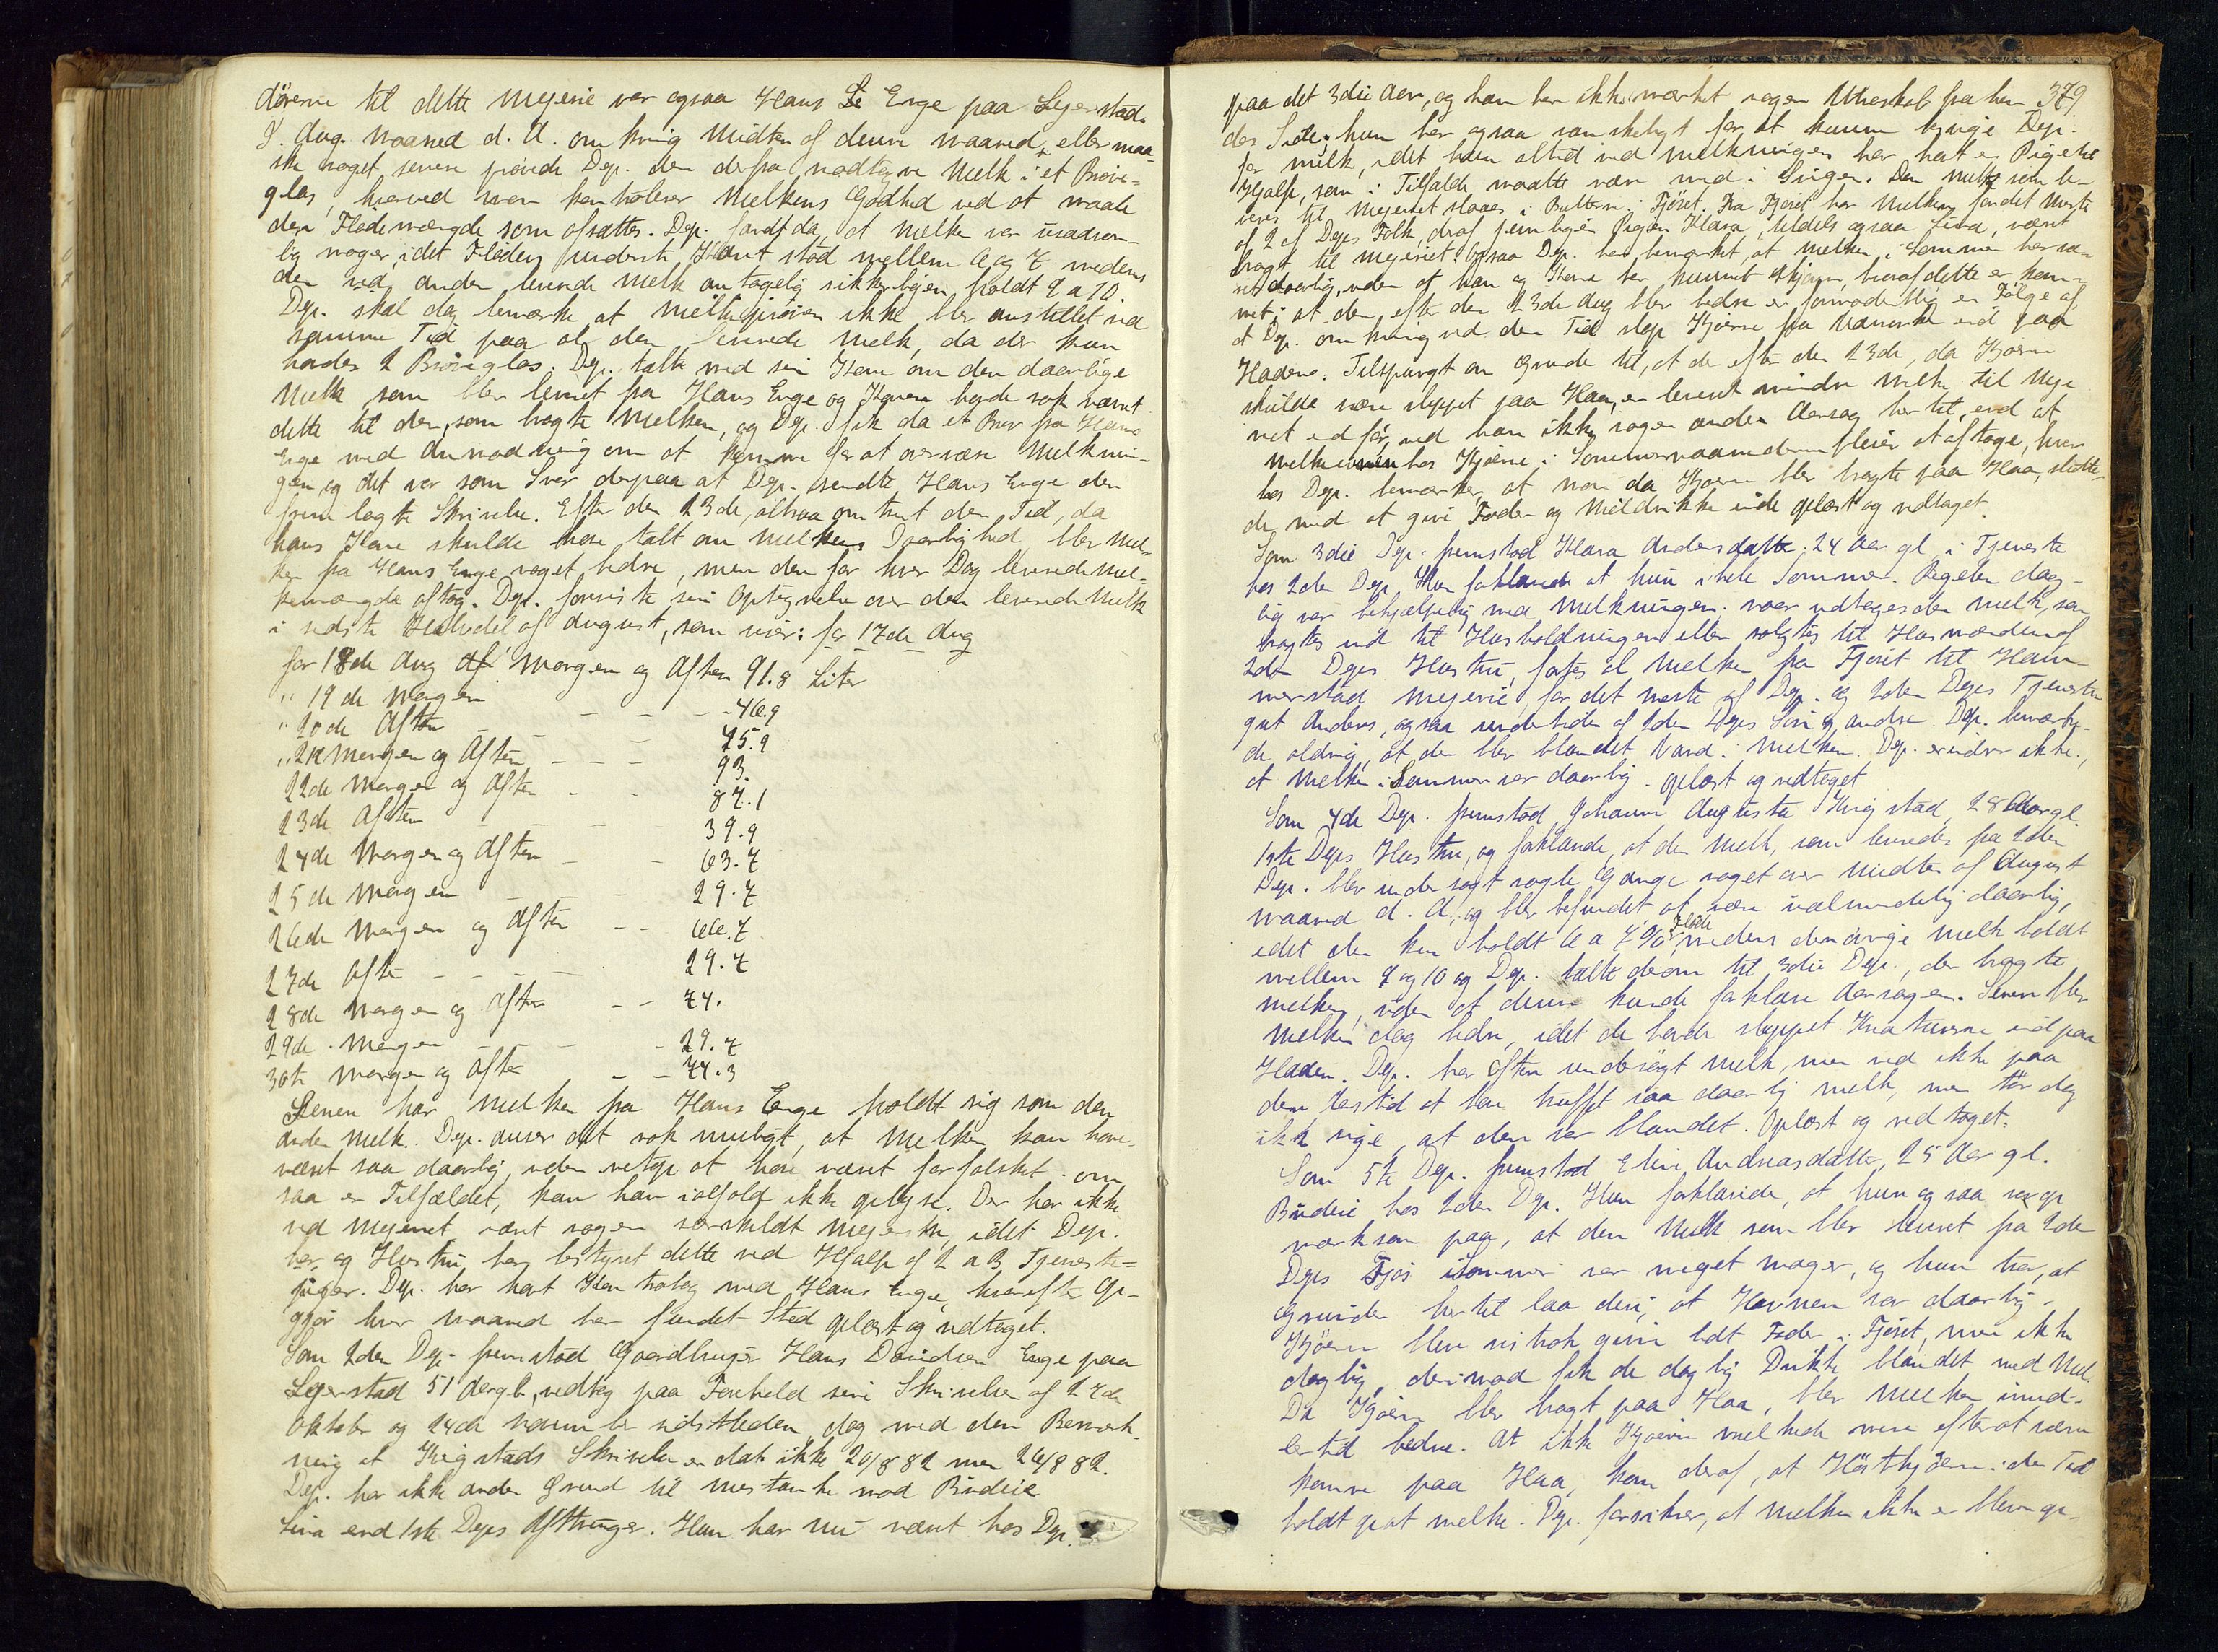 dörerne til dette Mejerie var ogsaa Hans Enge paa Lejerstad.
I Aug. Maaned d. A. omkring Midten af denne Maaned, eller maa-
ske noget senere prövede Dep. den derfra modtagne Melk i et Pröve-
glas, hvorved man kontrolerer Melkens Godhed ved at maale
den Flödemængde som afsættes. Dep. fandt da, at Melken var usædvan-
lig mager, idet Flöden stod mellem 6 og 7 medens
den ved anden leveret Melk antagelig sikkerligen holdt 9 a 10.
Dep. skal dog bemærke at Melkepröven ikke blev anstillet ved
samme Tid paa al den leverede Melk, da der kun
havdes 2 Pröveglas. Dep. talte med sin Kone om den daarlige
Melk som blev leveret fra Hans Enge og Konen havde nok nævnt
dette til den, som bragte Melken, og Dep. fik da et Brev fra Hans
Enge med Anmodning om at komme for at overvære Melknin-
gen, og det var som Svar derpaa at Dep. sendte Hans Enge den
fremlagte Skrivelse. Efter den 23de, altsaa omtrent den Tid, da
hans Kone skulde have talt om Melkens Daarlighed blev Mel-
ken fra Hans Enge noget bedre, men den for hver Dag leverede Mel-
kemængde aftog. Dep. foreviste sin Optegnelse over den leverede Melk
i sidste Halvdel af August, som viser: for 17de Aug
for 18de Aug af Morgen og Aften 91.8 Liter
" 19de Morgen
" 20de Aften - - - 46.9
" 21de Morgen og Aften - - - 45.9
22de Morgen og Aften - - 93.
23de Aften - - 87.1
24de Morgen og Aften - - 39.9
25de Morgen - - 63.7
26de Morgen og Aften - - 29.7
27de Aften - - - 66.7
28de Morgen og Aften - - 29.7
29de Morgen - - 74.
30te Morgen og Aften - - 29.7
- - 74.3
Senere har Melken fra Hans Enge holdt sig som den
anden Melk. Dep. anser det nok muligt, at Melken kan have
været saa daarlig, uden netop at have været forfalsket. om
saa er Tilfældet, kan han ialfald ikke oplyse. Der har ikke
ved Mejeriet været nogen særskildt Mejerske, idet Dep.
og Hustru har bestyret dette ved Hjælp af 2 a 3 Tjeneste-
piger. Dep. har havt Kontrakt med Hans Enge, hvorefter Op-
gjör hver Maaned har fundet Sted oplæst og vedtaget.
Som 2den Dep. fremstod Gaardbruger Hans Davidsen Enge paa
Lejerstad 51 Aar gl., vedtog paa Forehold sine Skrivelser af 27de
Oktober og 24de Novembr sidstleden, dog med den Bemærk-
ning at Krigstads Skrivelse er dat. ikke 20/8 82 men 26/8 82.
Dep. har ikke anden Grund til Mistanke mod Budeie
Lina end 1ste Deps Yttringer. Hun har nu været hos Dep.
379
paa det 3die Aar, og han har ikke mærket nogen Uredskab fra hen-
des Side; hun har ogsaa vanskeligt for at kunne besvige Dep.
for Melk, idet hun altid ved Melkningen har hat en Pige til
Hjælp, som i Tilfælde maatte være med i Svigen. Den Melk som le-
veres til Mejeriet slaaes i Bøttene i Fjöset. Fra Fjöset har Melken for det meste
af 2 af Deps Folk, deraf Pigen Klara, tildels ogsaa Lina, været
bragt til Mejeriet. Ogsaa Dep. har bemærket, at Melken i Sommer har væ-
ret daarlig, uden at han og Kone har kunnet skjönne, hvoraf dette er kom-
met; at den efter den 23de Aug blev bedre er formodentlig en Fölge af
at Dep. omkring ved den Tid slap Kjörne fra Udmarken ind paa
Haaen. Tilspurgt om Grunde til, at der efter den 23de, da Kjörne
skulde være sluppet paa Haa, er leveret mindre Melk til Meje-
riet end för, ved han ikke nogen anden Aarsag hertil, end at
Melkeevnen hos Kjörne i Sommermaanederne pleier at aftage, hvor-
hos Dep. bemærker, at man da Kjörne blev bragte paa Haa, slutte-
de med at give Foder og Meldrikke inde oplæst og vedtaget.
Som 3die Dep. fremstod Klara Andersdatter, 24 Aar gl. i Tjeneste
hos 2den Dep. Hun forklarede at hun i hele Sommer i Regelen dag-
lig var behjælpelig med Melkningen. naar undtages den Melk, som
bragtes ind til Husholdningen eller solgtes til Husmænderne af
2den Deps Hustru, förtes al Melken fra Fjöset til Ham-
merstad Mejerie, for det meste af Dep. og 2den Deps Tjeneste
gut Anders, ogsaa undertiden af 2den Deps Sön og andre. Dep. bemærke-
de aldrig, at der blev blandet Vand i Melken. Dep. erindrer ikke,
at Melken i Sommer var daarlig. oplæst og vedtaget
Som 4de Dep. fremstod Johanne Augusta Krigstad, 28 Aar gl.
1ste Deps Hustru, og forklarede, at den Melk, som leveredes fra 2den
Dep. blev undersögt nogle Gange noget over Midten af August
maaned d. A. og blev befundet at være ualmindelig daarlig,
idet den kun holdt 6 a 7 % Flöde, medens den övrige Melk holdt
mellem 9 og 10 og Dep. talte derom til 3die Dep., der bragte
Melken, uden at denne kunde forklare Aarsagen. Senere blev
Melken dog bedre, idet de havde sluppet Kreaturerne ind paa
Haaen. Dep. har oftere undersögt Melk, men ved ikke paa
den Aarstid at have truffet saa daarlig Melk, men tör dog
ikke sige, at den var blandet. Oplæst og vedtaget.
Som 5te Dep. fremstod Eline Andreasdatter, 25 Aar gl.
Budeie hos 2den Dep. Hun forklarede, at hun ogsaa var op-
mærksom paa, at den Melk som blev leveret fra 2den
Deps Fjös isommer var meget mager, og hun tror, at
Grunden hertil laa deri, at Havnen var daarlig.
Kjörne blev vistnok givne lidt Foder i Fjöset, men ikke
daglig, derimod fik de daglig Drikke blandet med Mel.
Da Kjörne blev bragt paa Haa, blev Melken imid-
lertid bedre. At ikke Kjörne melkede mere efterat være
komne paa Haa, kom deraf, at Höstkjörne i den Tid
holdt op at melke. Dep. forsikrer, at Melken ikke er bleven op-